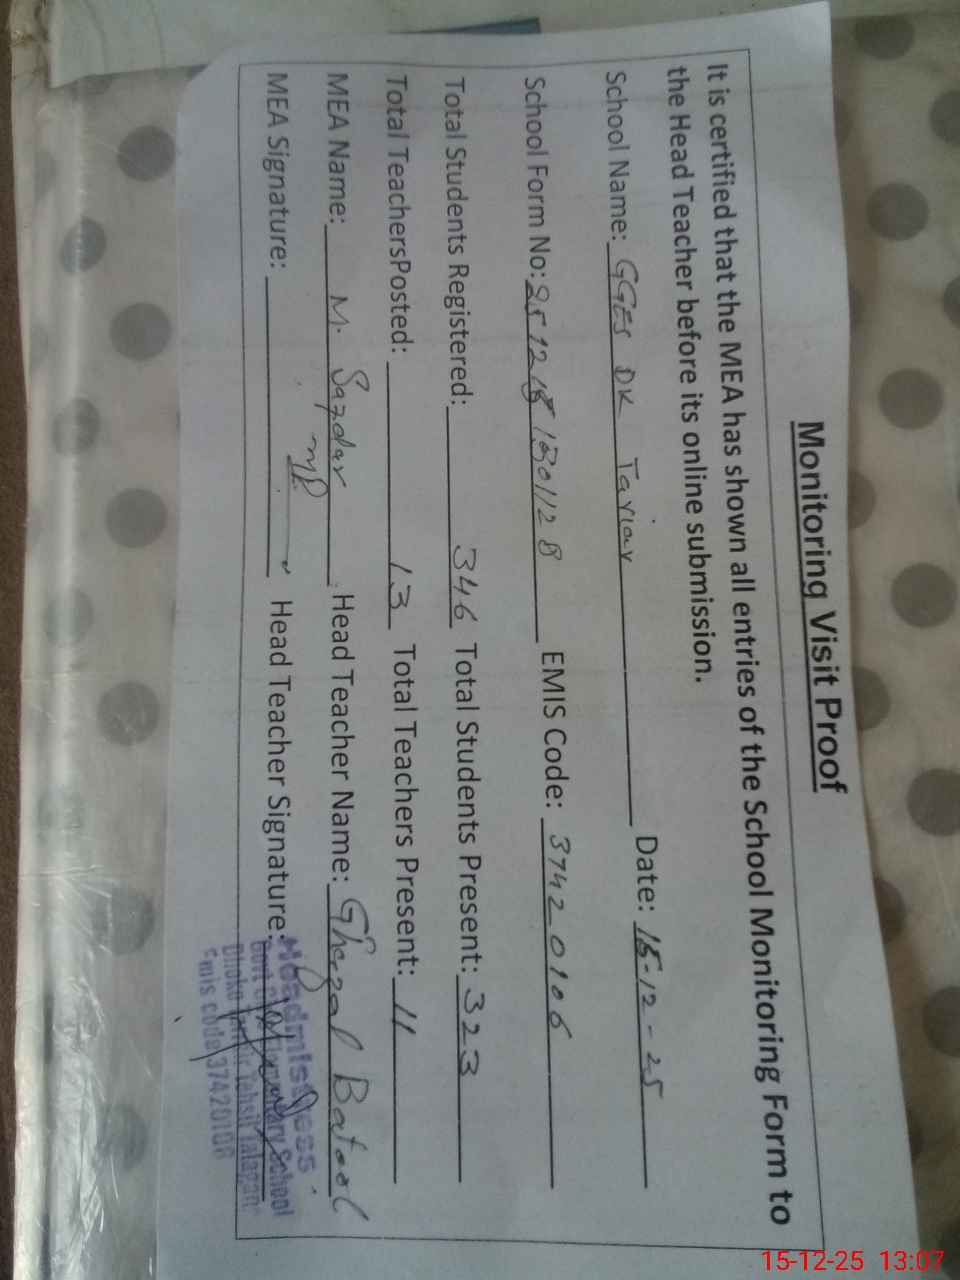 Monitoring Visit Proof
It is certified that the MEA has shown all entries of the School Monitoring Form to
the Head Teacher before its online submission.
School Name: GGES DK Tariar Date: 15-12-25
School Form No: EMIS Code: 37420106
Total Students Registered: 346 Total Students Present: 323
Total TeachersPosted: 13 Total Teachers Present: 11
MEA Name: M. Safdar Head Teacher Name: Ghazal Batool
MEA Signature: Head Teacher Signature:
Headmistress
Govt Elementary School
Dhoke Tehsil Talagang
Emis code 37420106
15-12-25 13:07